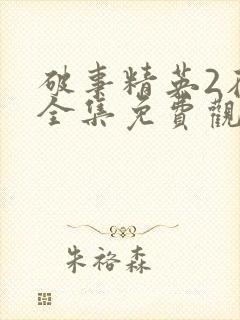 破事精英2
全集免費觀
朱裕森